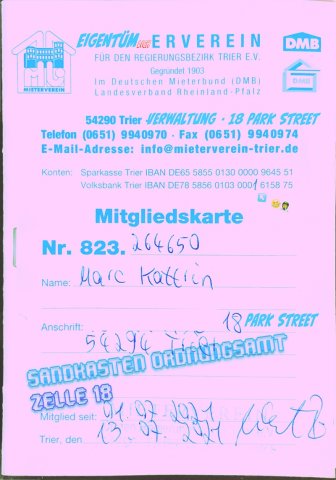 EIGENTÜMER ERVEREIN
FÜR DEN REGIERUNGSBEZIRK TRIER E.V.
Gegründet 1903
Im Deutschen Mieterbund (DMB)
Landesverband Rheinland-Pfalz
MIETERVEREIN
DMB
54290 Trier VERWALTUNG · 18 PARK STREET
Telefon (0651) 9940970 · Fax (0651) 9940974
E-Mail-Adresse: info@mieterverein-trier.de
Konten: Sparkasse Trier IBAN DE65 5855 0130 0000 9645 51
Volksbank Trier IBAN DE78 5856 0103 0001 6158 75
Mitgliedskarte
Nr. 823. 264650
Name: Marc Kattrin
Anschrift: 18 PARK STREET
54294 Trier
SANDKASTEN ORDNUNGSAMT
ZELLE 18
Mitglied seit: 01.07.2021
Trier, den 13.07.2021